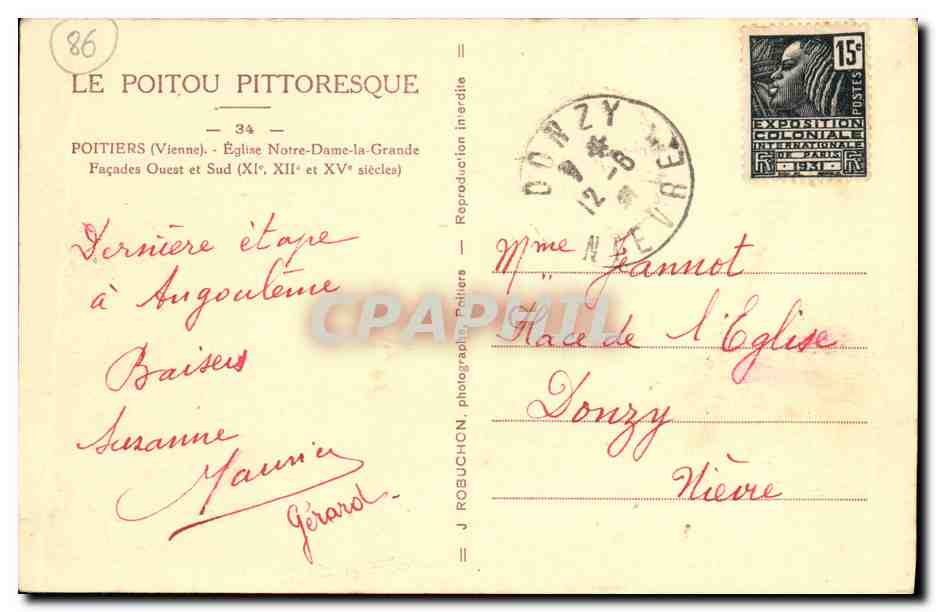 86
LE POITOU PITTORESQUE
— 34 —
POITIERS (Vienne). - Église Notre-Dame-la-Grande
Façades Ouest et Sud (XIe, XIIe et XVe siècles)
Dernière étape
à Angoulême
Baisers
Suzanne
Maurice
Gérard
= J ROBUCHON, photographe, Poitiers — Reproduction interdite =
DONZY
12 -8
NIEVRE
15c
POSTES
EXPOSITION
COLONIALE
INTERNATIONALE
DE PARIS
RF 1931 RF
Mme Jeannot
Place de l'Eglise
Donzy
Nièvre
CPAPHIL